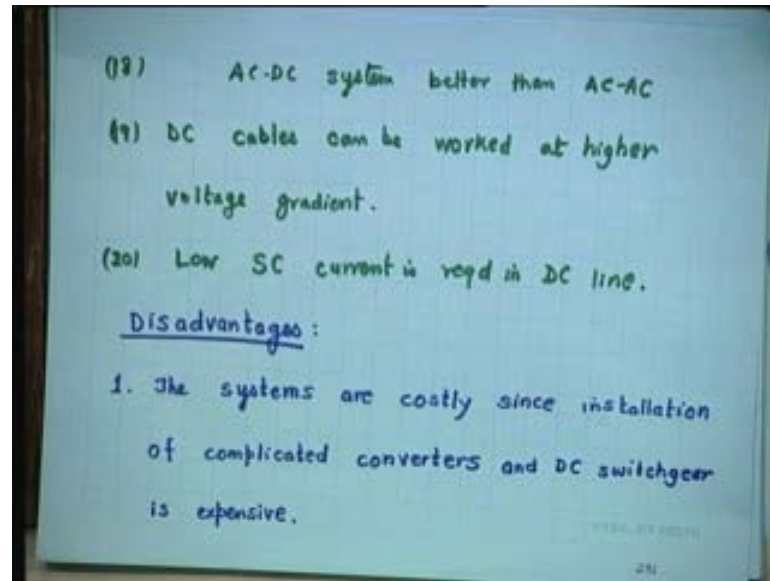 (18) AC-DC system better than AC-AC
(19) DC cables can be worked at higher
voltage gradient.
(20) Low SC current is reqd in DC line.
Disadvantages :
1. The systems are costly since installation
of complicated converters and DC switchgear
is expensive.